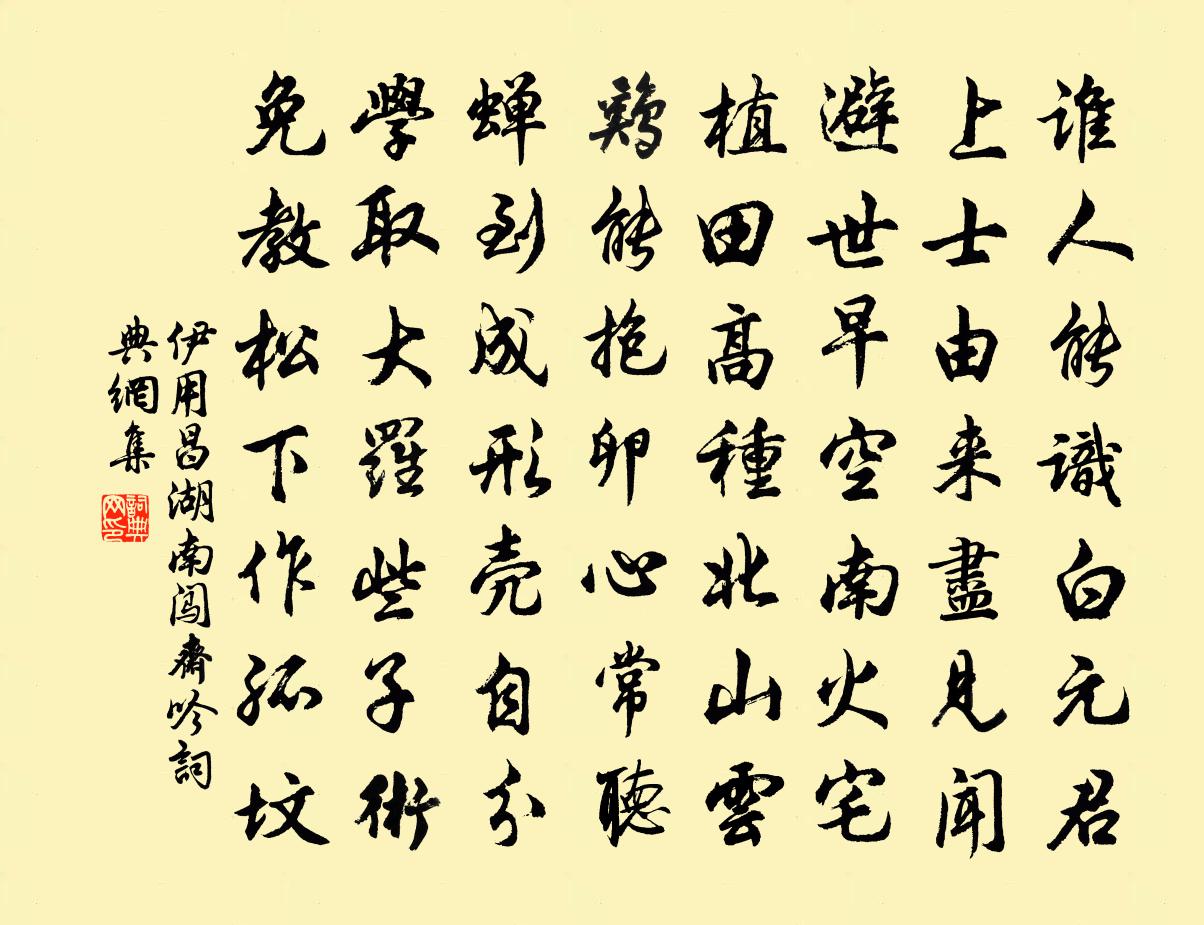 谁人能識白元君
上士由来盡見聞
避世早空南火宅
植田高種北山雲
鷄能抱卵心常聽
蝉到成形壳自分
學取大羅些子術
免教松下作孤坟
伊用昌湖南闯齋吟詞
典網集
詞典网印